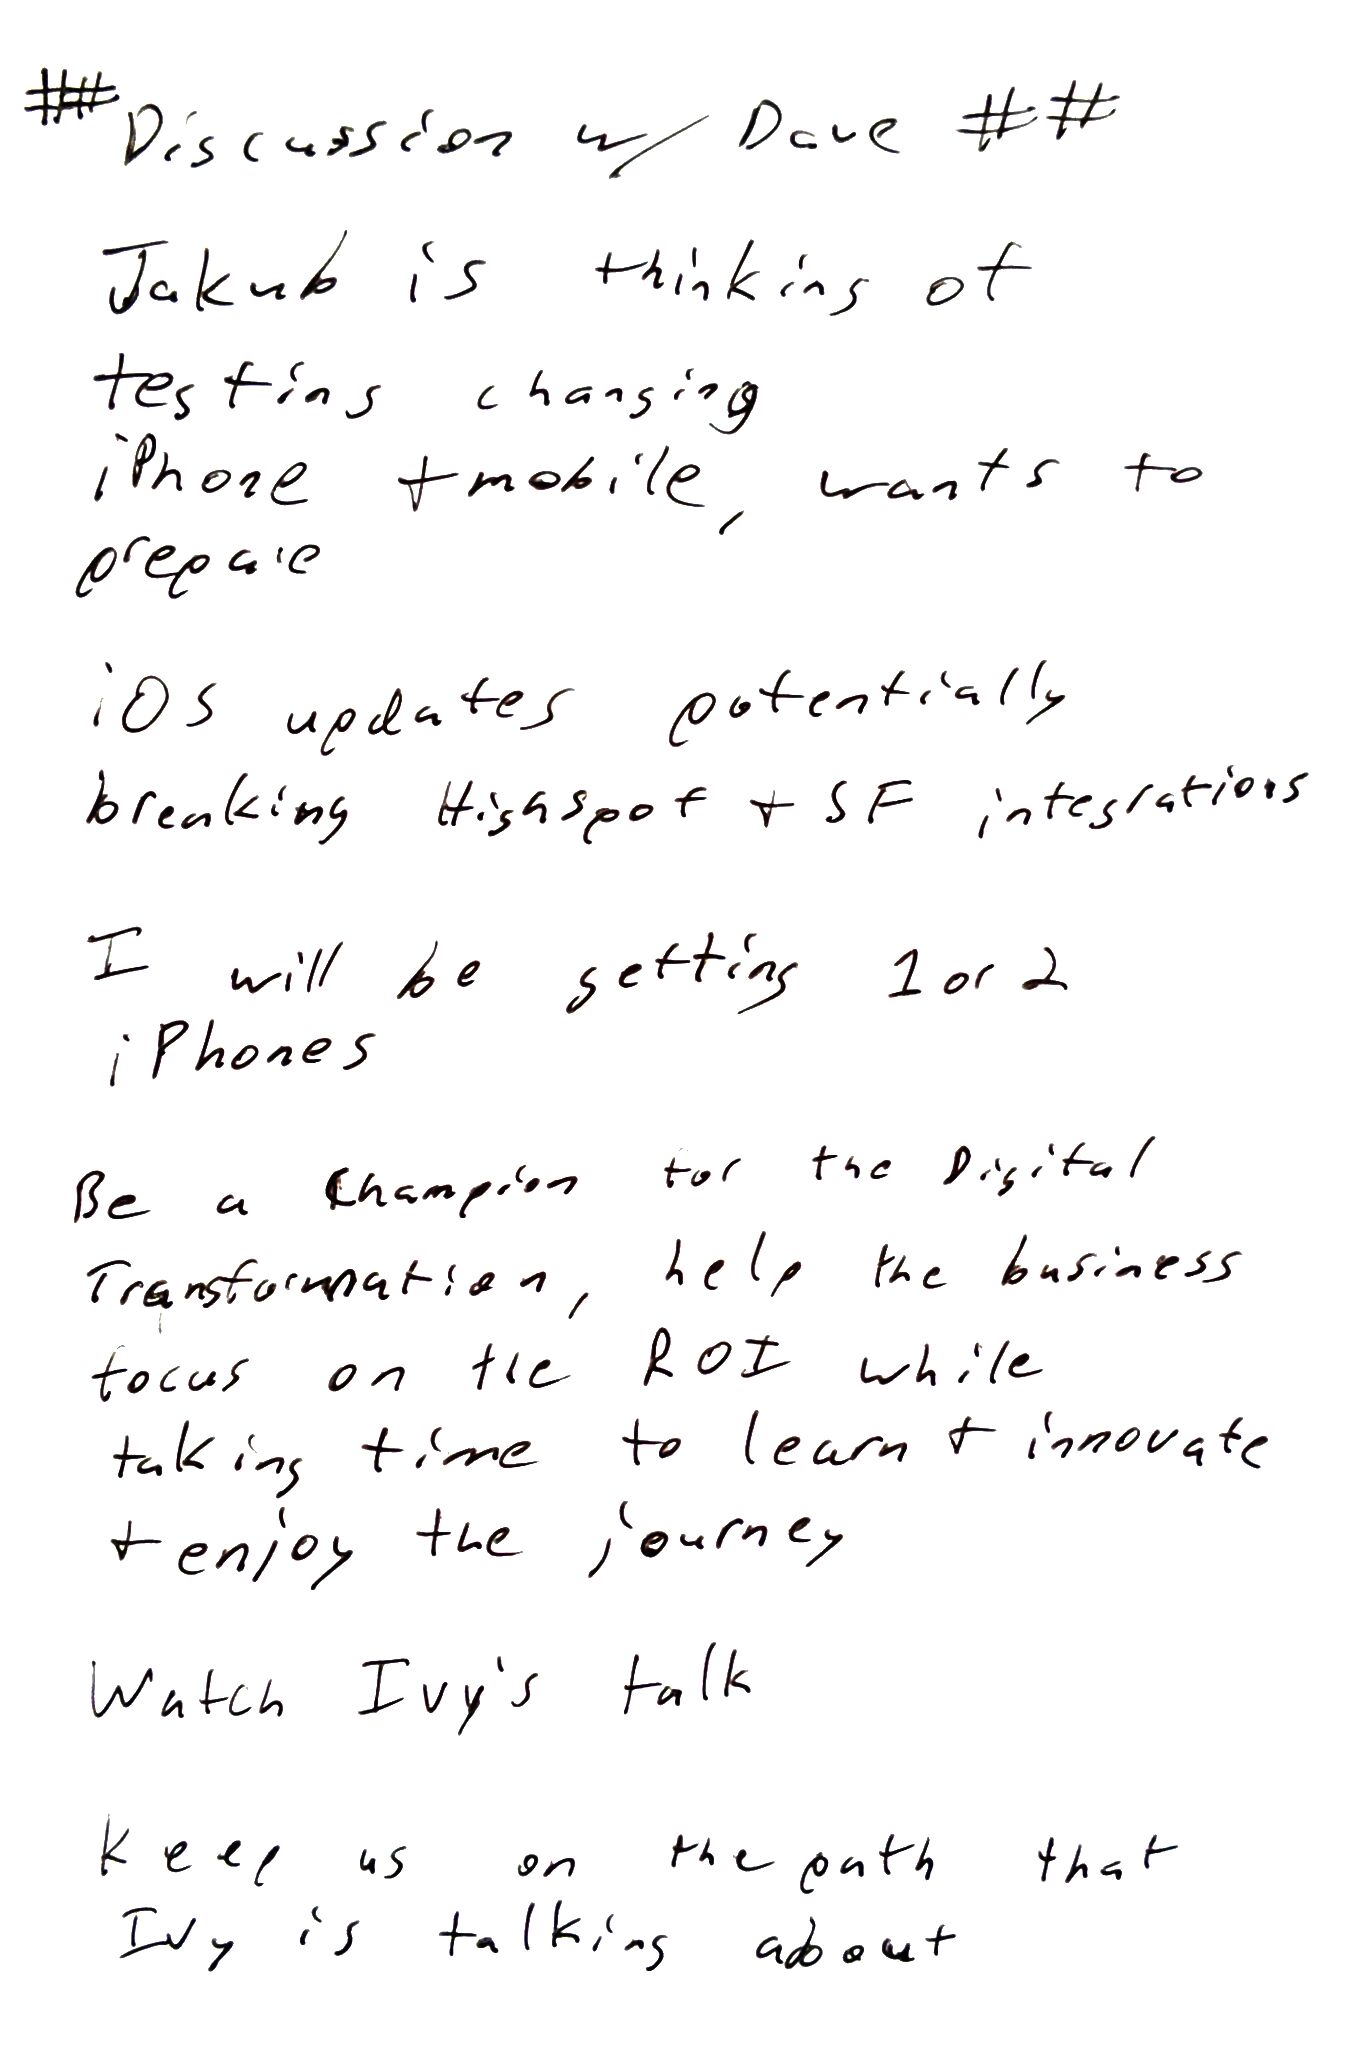 ## Discussion w/ Dave ##
Jakub is thinking of
testing changing
iPhone + mobile, wants to
prepare
iOS updates potentially
breaking Highspot + SF integrations
I will be getting 1 or 2
iPhones
Be a Champion for the Digital
Transformation, help the business
focus on the ROI while
taking time to learn + innovate
+ enjoy the journey
Watch Ivy's talk
Keep us on the path that
Ivy is talking about